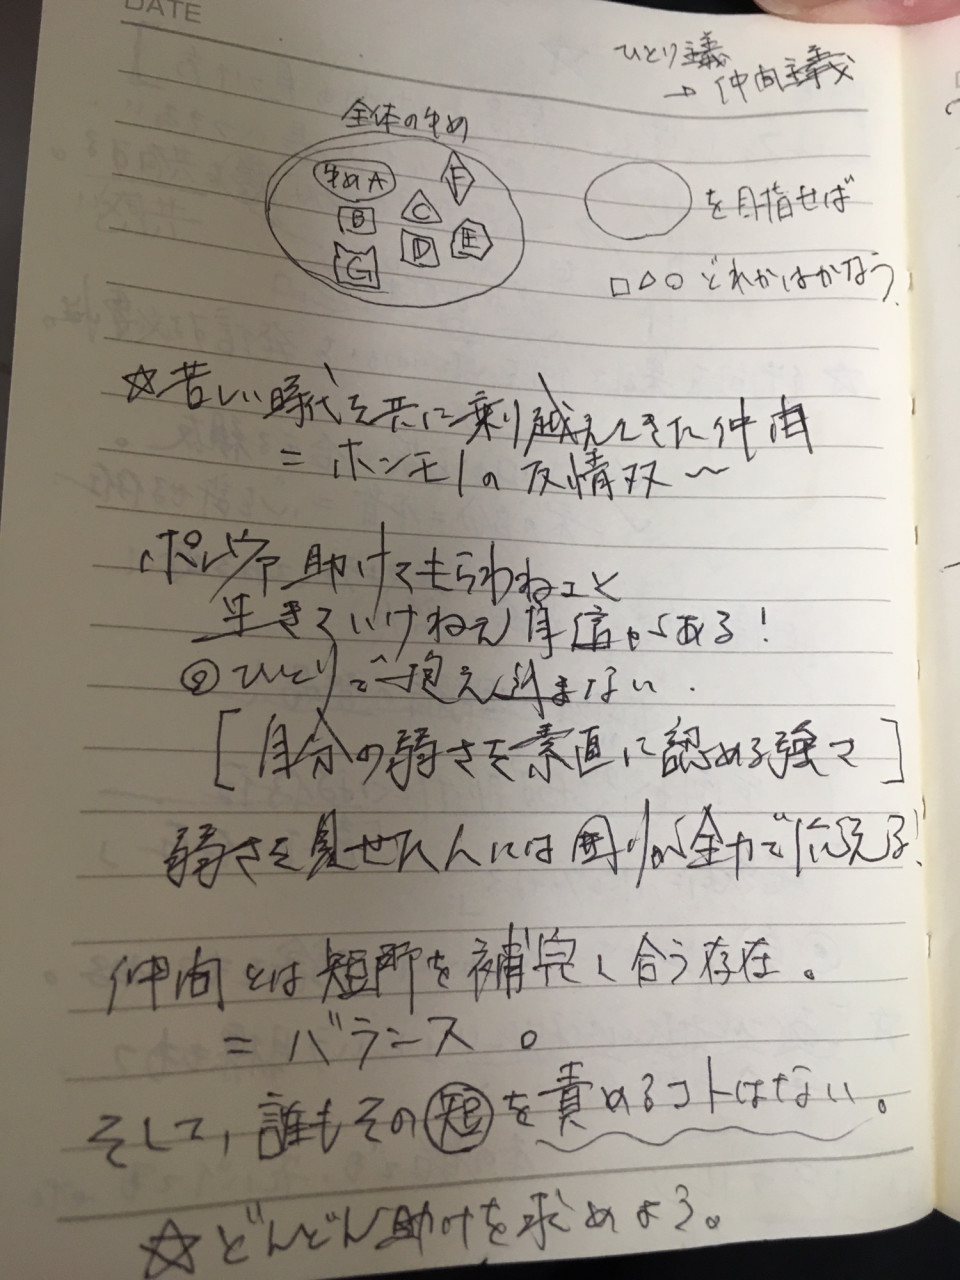 DATE
ひとり主義
→仲間主義
全体のゆめ
ゆめA
F
B
C
G
D
E
を目指せば
□△○どれかはかなう
☆苦しい時代を共に乗り越えてきた仲間
=ホンモノの友情双〜
助けてもらわねェと
生きていけねえ自信がある!
ひとりで抱え込まない.
[自分の弱さを素直に認める強さ]
弱さを見せた人には周りが全力で応える!
仲間とは短所を補完し合う存在。
=バランス。
そして、誰もその短を責めるコトはない。
☆どんどん助けを求めよう。